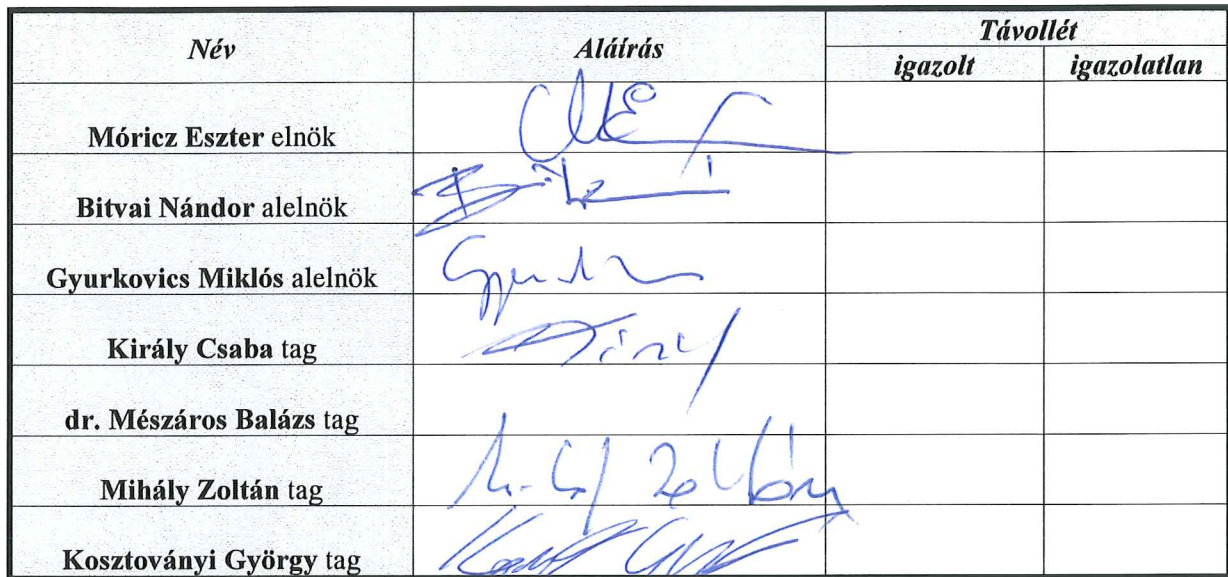 Név Aláírás Távollét
igazolt igazolatlan
Móricz Eszter elnök
Bitvai Nándor alelnök
Gyurkovics Miklós alelnök
Király Csaba tag
dr. Mészáros Balázs tag
Mihály Zoltán tag Zoltán
Kosztoványi György tag